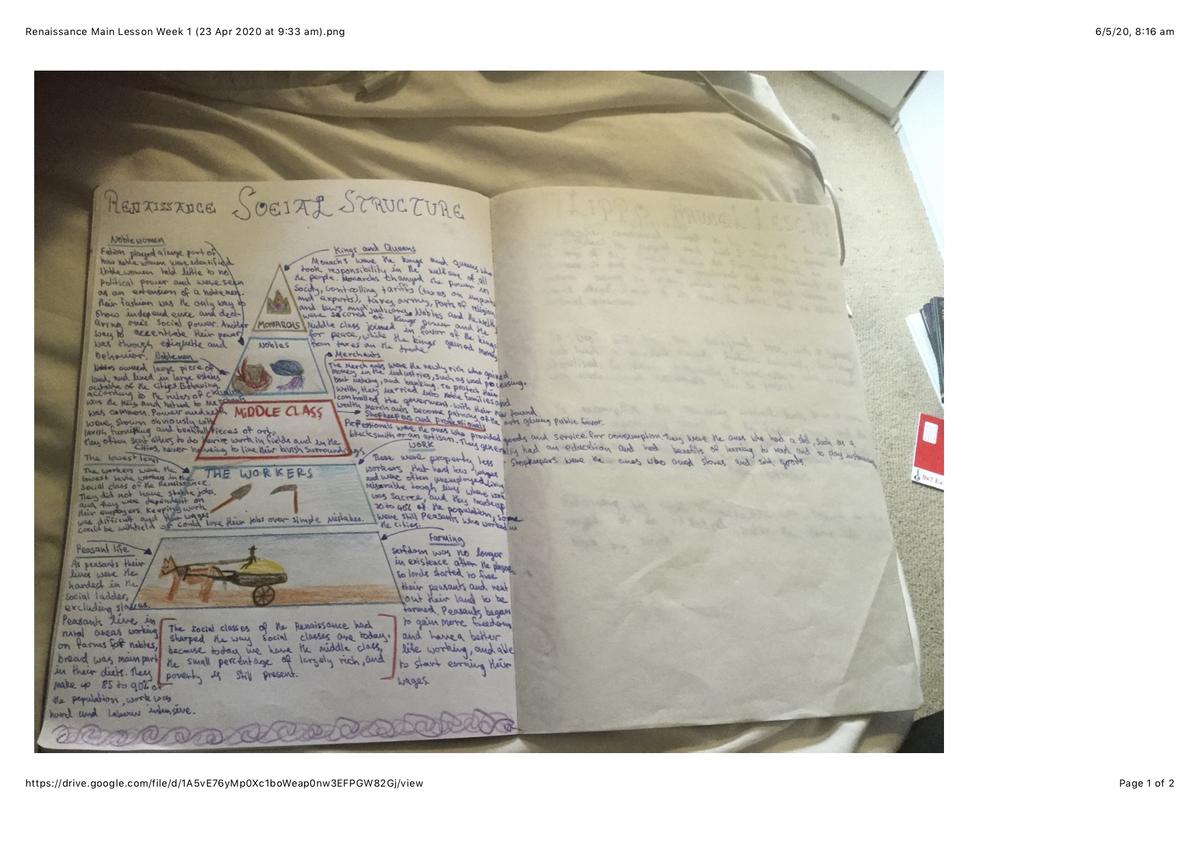 Renaissance Main Lesson Week 1 (23 Apr 2020 at 9:33 am).png
6/5/20, 8:16 am
RENAISSANCE SOCIAL STRUCTURE
Noblewomen
played a large part of
how noble women was identified
Noble women held little to no
Political power and were seen
as an extension of a
their fashion was the only way to
Show independence and decl-
aring one's social power. Another
way to accentuate their power
was through etiquette and
behavior.
Noblemen
Nobles owned large piece of
land, and lived in large estates
outside of the cities. Behaving
according to the rules of
was the keys and hatred to Merchants
was common. Power and wealth
were shown obviously with
lavish furnishing and beautiful pieces of art,
they often sent others to do work in fields and in the
Cities never having to live their lavish surroundings
The lowest level
The workers were the
lowest in the
social class of the Renaissance.
They did not have stable jobs,
and they were dependent on
their employers. Keeping work
was difficult and their wages
could be withheld or could lose their jobs over simple mistakes.
Peasant life
As peasants their
lives were the
hardest in the
social ladder,
excluding slaves.
Peasants live in
rural areas working
on farms for nobles,
bread was main part
in their diets. They
make up 85 to 90% of
the population, work was
hard and labour intensive.
MONARCHS
NOBLES
MIDDLE CLASS
THE WORKERS
Kings and Queens
Monarchs were the kings and queens who
took responsibility in the welfare of all
the people. Monarchs changed the power in
society, controlling tariffs (taxes on imports
and exports), taxes, army, parts of religion
and laws and justice. Nobles and the
were scared of kings power and the
Middle class joined in favor of the kings
for peace, while the kings gained money
from taxes on the trade
Merchants
The Merchants were the newly rich who gained
money in the industries, such as wool processing,
boat making, and banking. To protect their
wealth, they married into noble families and
controlled the government. With their new found
wealth Merchants become patrons of the arts gaining public favor.
Shopkeepers and professionals
Professionals were the ones who provided goods and service for consumption they were the ones who had a skill, such as a
blacksmith or an artisan. They generally had an education and had benefits of learning to read, and to play instruments
Shopkeepers were the ones who used slaves and sold goods.
WORK
These were property less
workers that had low wages
and were often unemployed living
miserable tough lives where work
was Scarce, and they made up
30 to 40% of the population, some
were still Peasants who worked in
the cities.
Farming
serfdom was no longer
in existence after the plague,
so lords started to free
their peasants and rent
out their land to be
farmed. Peasants began
to gain more freedom
and have a better
life working, and able
to start earning their
wages.
The social classes of the Renaissance had
sharped the way social classes are today.
because today we have the middle class,
the small percentage of largely rich, and
poverty is still present.
https://drive.google.com/file/d/1A5vE76yMp0Xc1boWeap0nw3EFPGW82Gj/view
Page 1 of 2